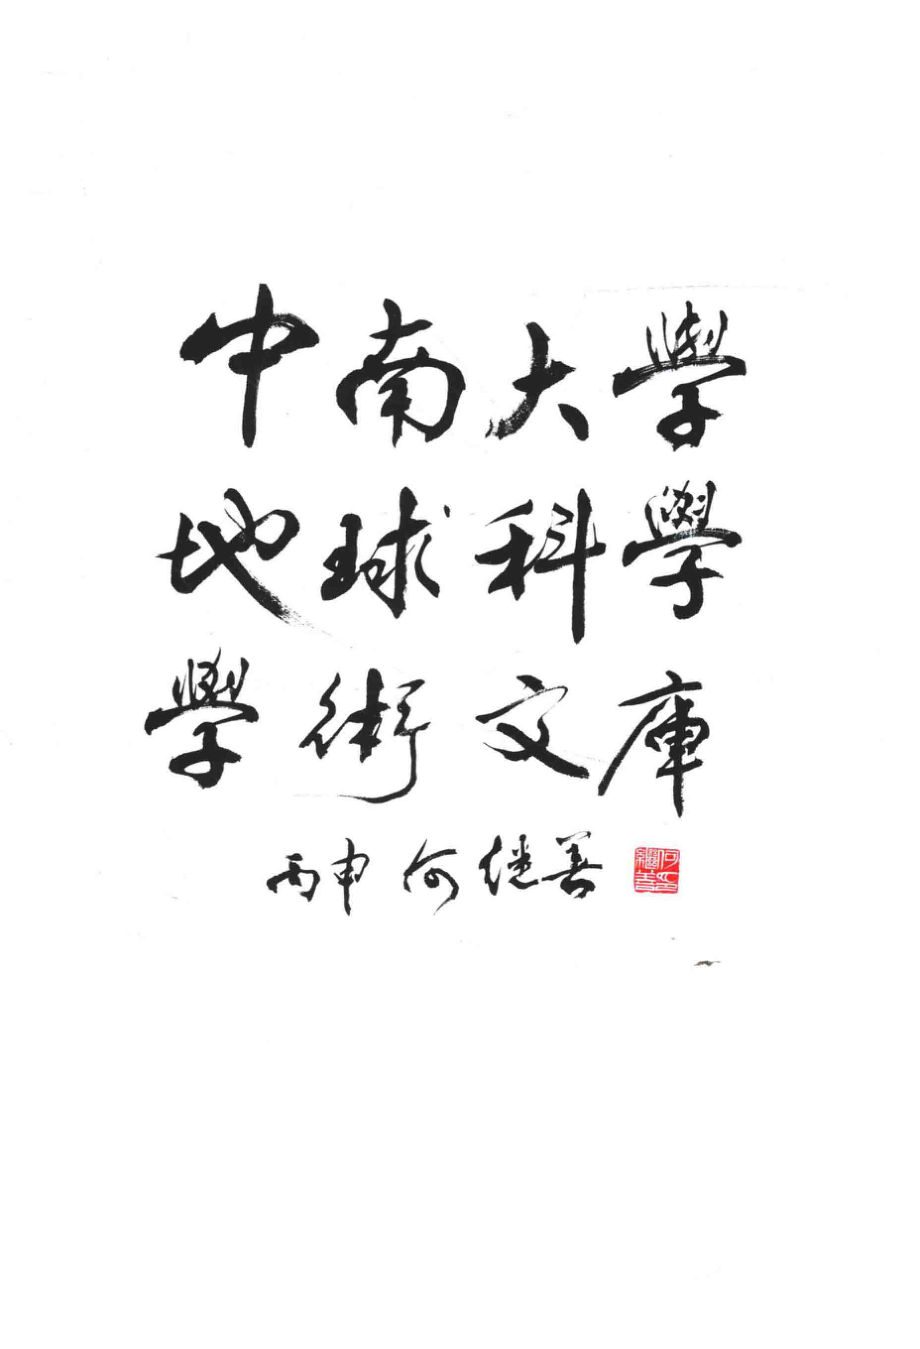 中南大學
地球科學
學術文庫
丙申 何继善
何繼善印